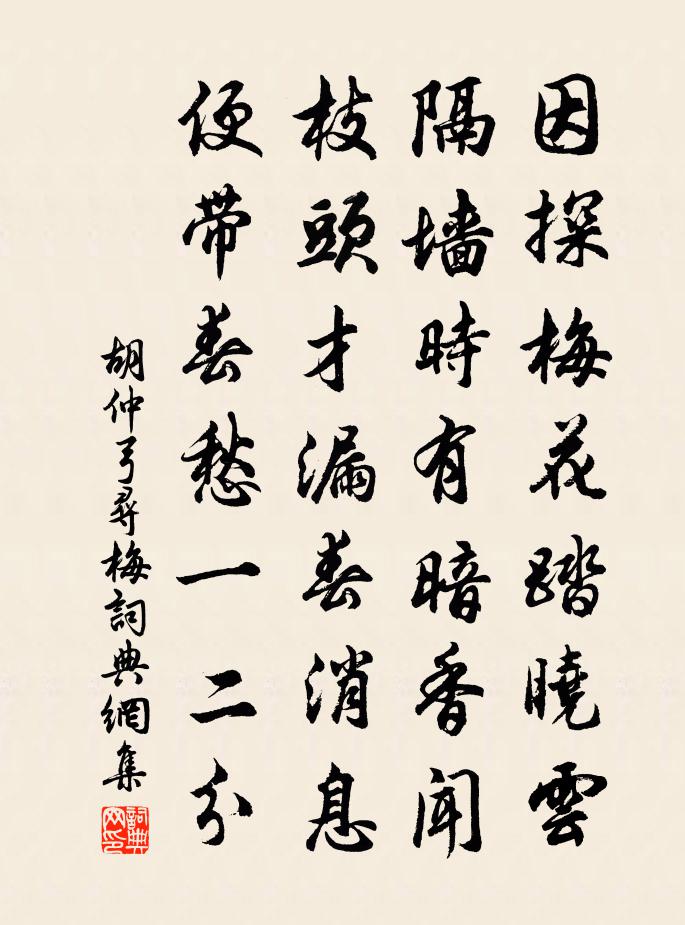 因探梅花踏曉雲
隔墙時有暗香聞
枝頭才漏春消息
便带春愁一二分
胡仲弓尋梅詞典網集
詞典网印